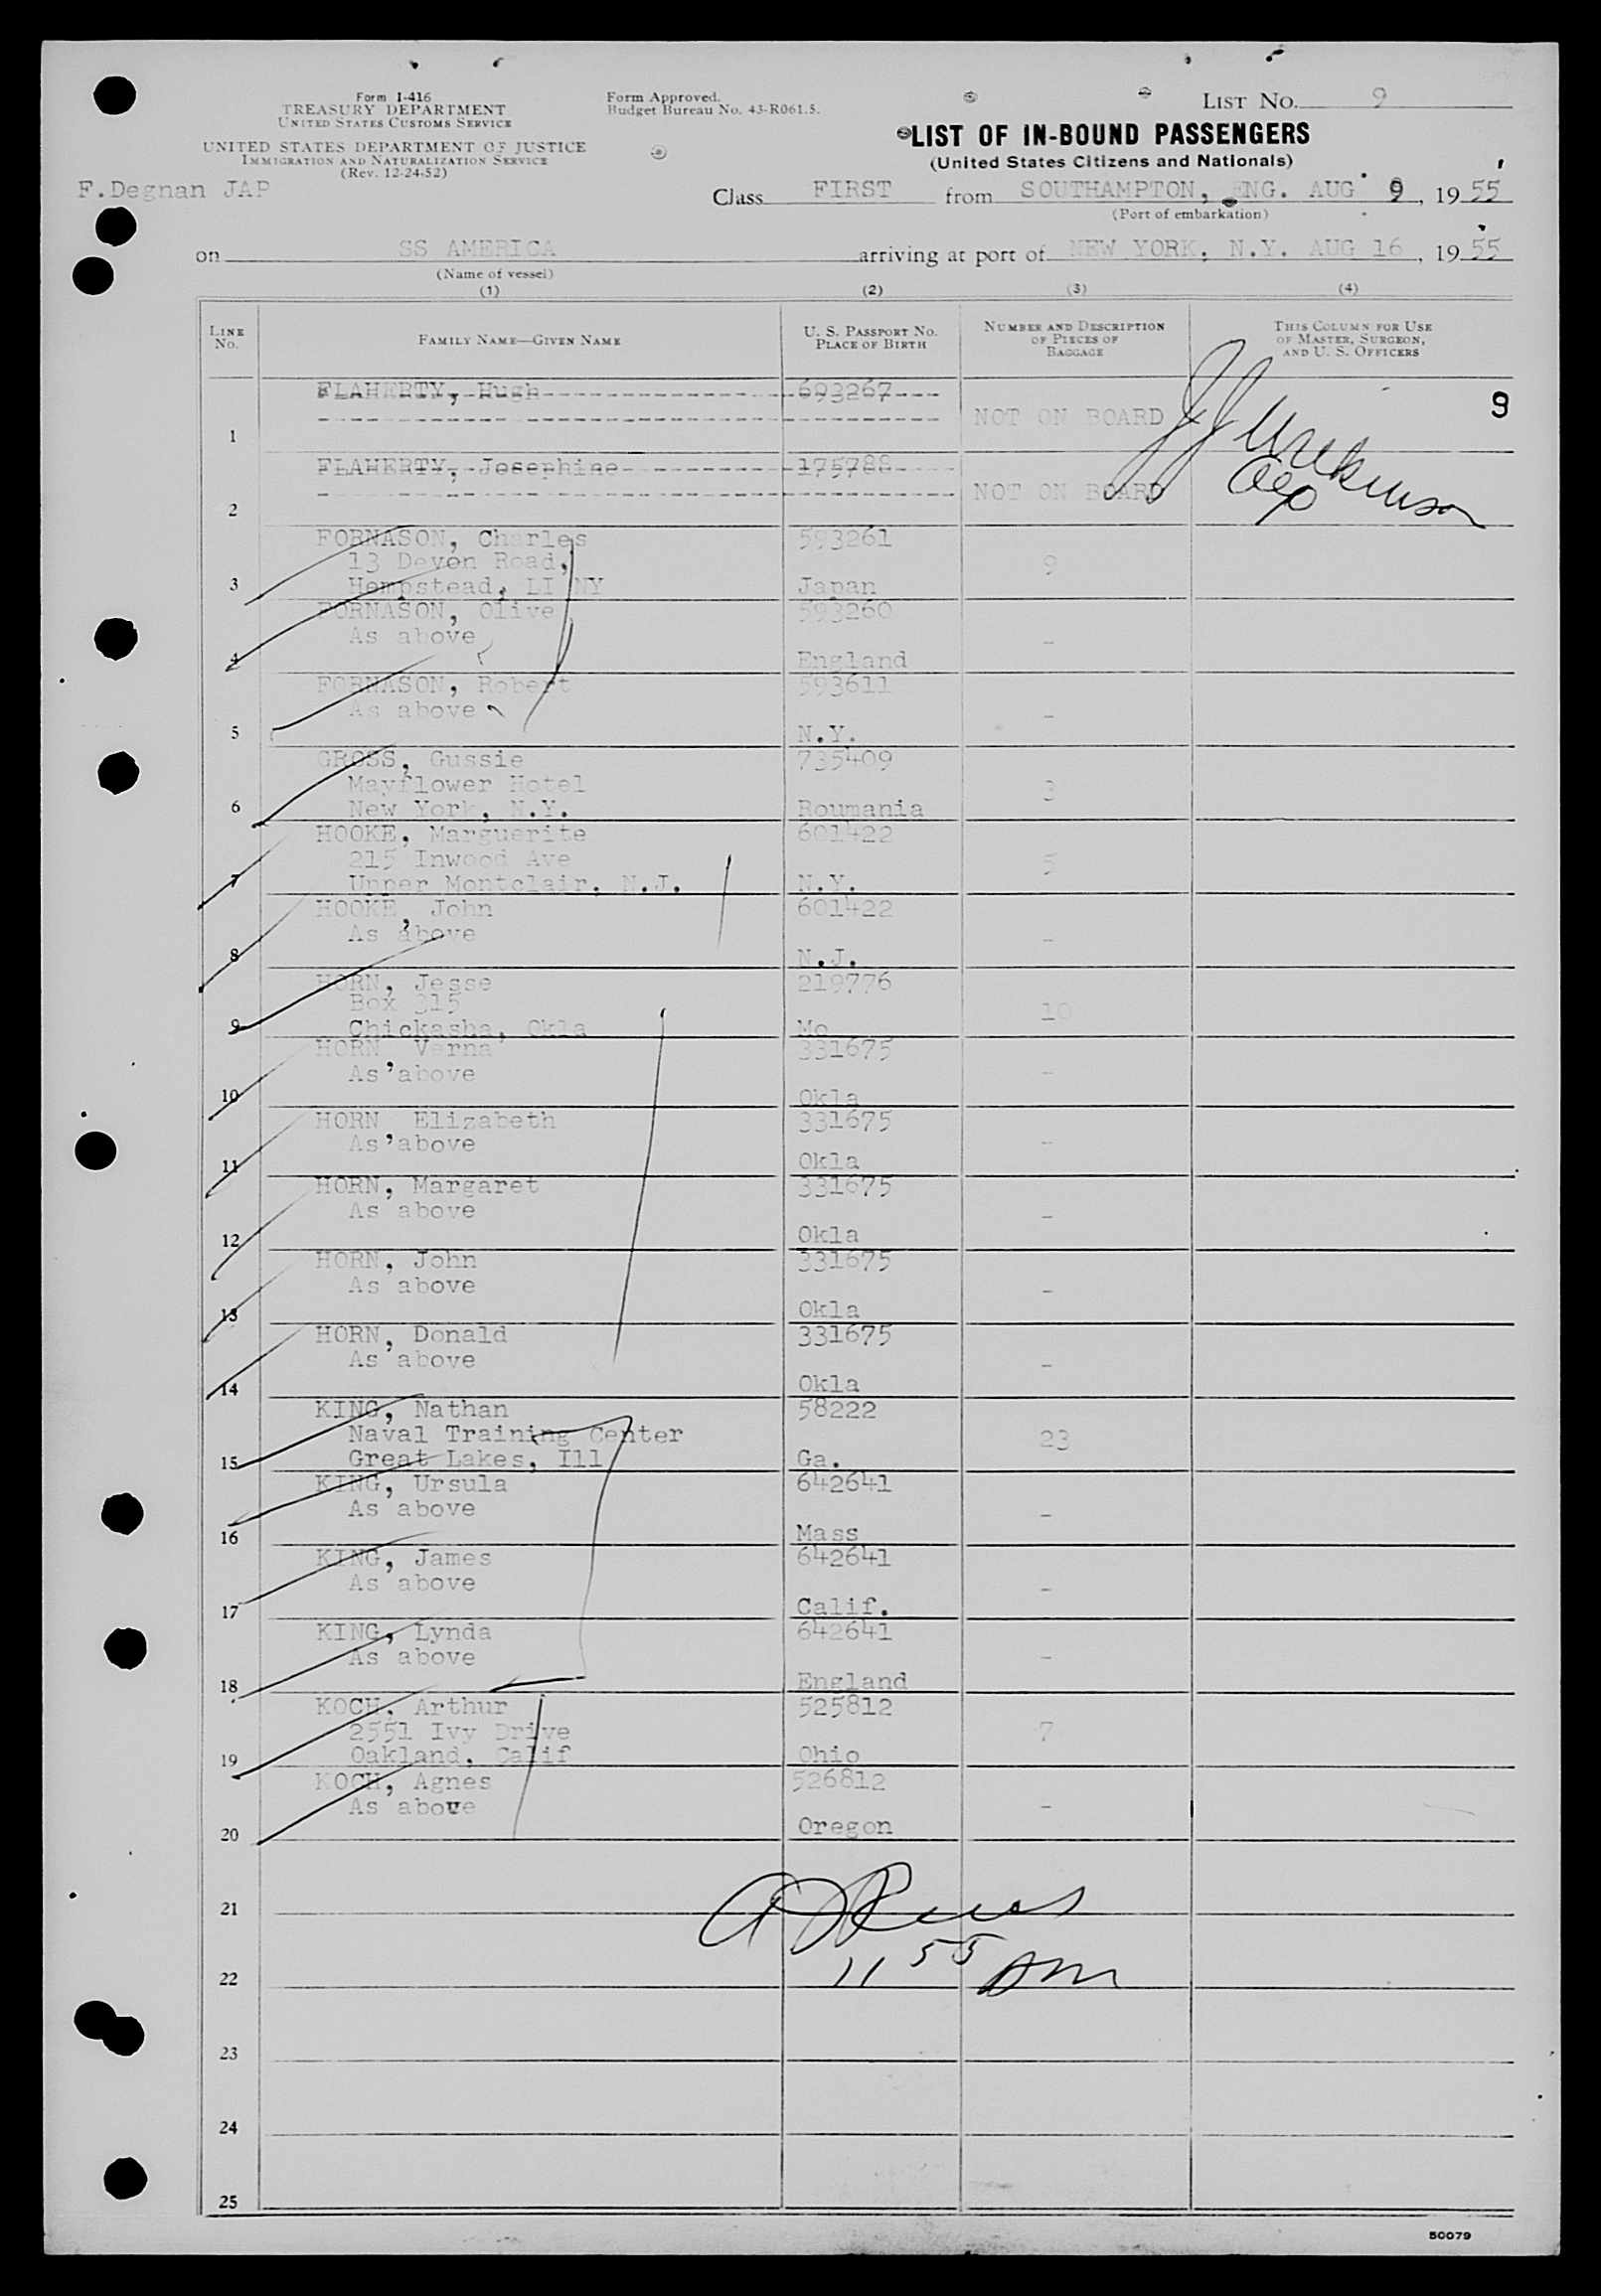 Form I-416
TREASURY DEPARTMENT
UNITED STATES CUSTOMS SERVICE
UNITED STATES DEPARTMENT OF JUSTICE
IMMIGRATION AND NATURALIZATION SERVICE
(Rev. 12-24-52)
Form Approved.
Budget Bureau No. 43-R061.5.
LIST NO. 9
LIST OF IN-BOUND PASSENGERS
(United States Citizens and Nationals)
F.Degnan JAP
Class FIRST from SOUTHAMPTON, ENG. AUG 9, 1955
(Port of embarkation)
on SS AMERICA arriving at port of NEW YORK, N.Y. AUG 16, 1955
(Name of vessel)
(1) (2) (3) (4)
LINE NO.
FAMILY NAME—GIVEN NAME
U. S. PASSPORT NO.
PLACE OF BIRTH
NUMBER AND DESCRIPTION
OF PIECES OF
BAGGAGE
THIS COLUMN FOR USE
OF MASTER, SURGEON,
AND U. S. OFFICERS
FLAHERTY, Hugh 693267
NOT ON BOARD 9
1
FLAHERTY, Josephine 175788
NOT ON BOARD
2
FORNASON, Charles 593261
13 Devon Road, 9
3 Hempstead, LI NY Japan
FORNASON, Olive 593260
As above -
4 England
FORNASON, Robert 593611
As above -
5 N.Y.
GROSS, Gussie 735409
Mayflower Hotel 3
6 New York, N.Y. Roumania
HOOKE, Marguerite 601422
215 Inwood Ave 5
7 Upper Montclair, N.J. N.Y.
HOOKE, John 601422
As above -
8 N.J.
HORN, Jesse 219776
Box 315 10
9 Chickasha, Okla Mo
HORN, Verna 331675
As above -
10 Okla
HORN, Elizabeth 331675
As above -
11 Okla
HORN, Margaret 331675
As above -
12 Okla
HORN, John 331675
As above -
13 Okla
HORN, Donald 331675
As above -
14 Okla
KING, Nathan 58222
Naval Training Center 23
15 Great Lakes, Ill Ga.
KING, Ursula 642641
As above -
16 Mass
KING, James 642641
As above -
17 Calif.
KING, Lynda 642641
As above -
18 England
KOCH, Arthur 525812
2551 Ivy Drive 7
19 Oakland, Calif Ohio
KOCH, Agnes 526812
As above -
20 Oregon
21
11 55 AM
22
23
24
25
50079